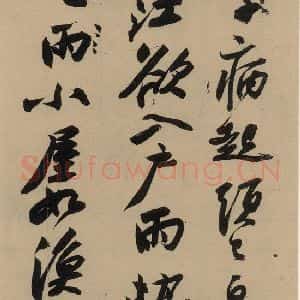 子病起須已白
江欲入戶雨勢
雨小屋如漁
Shufawang.CN